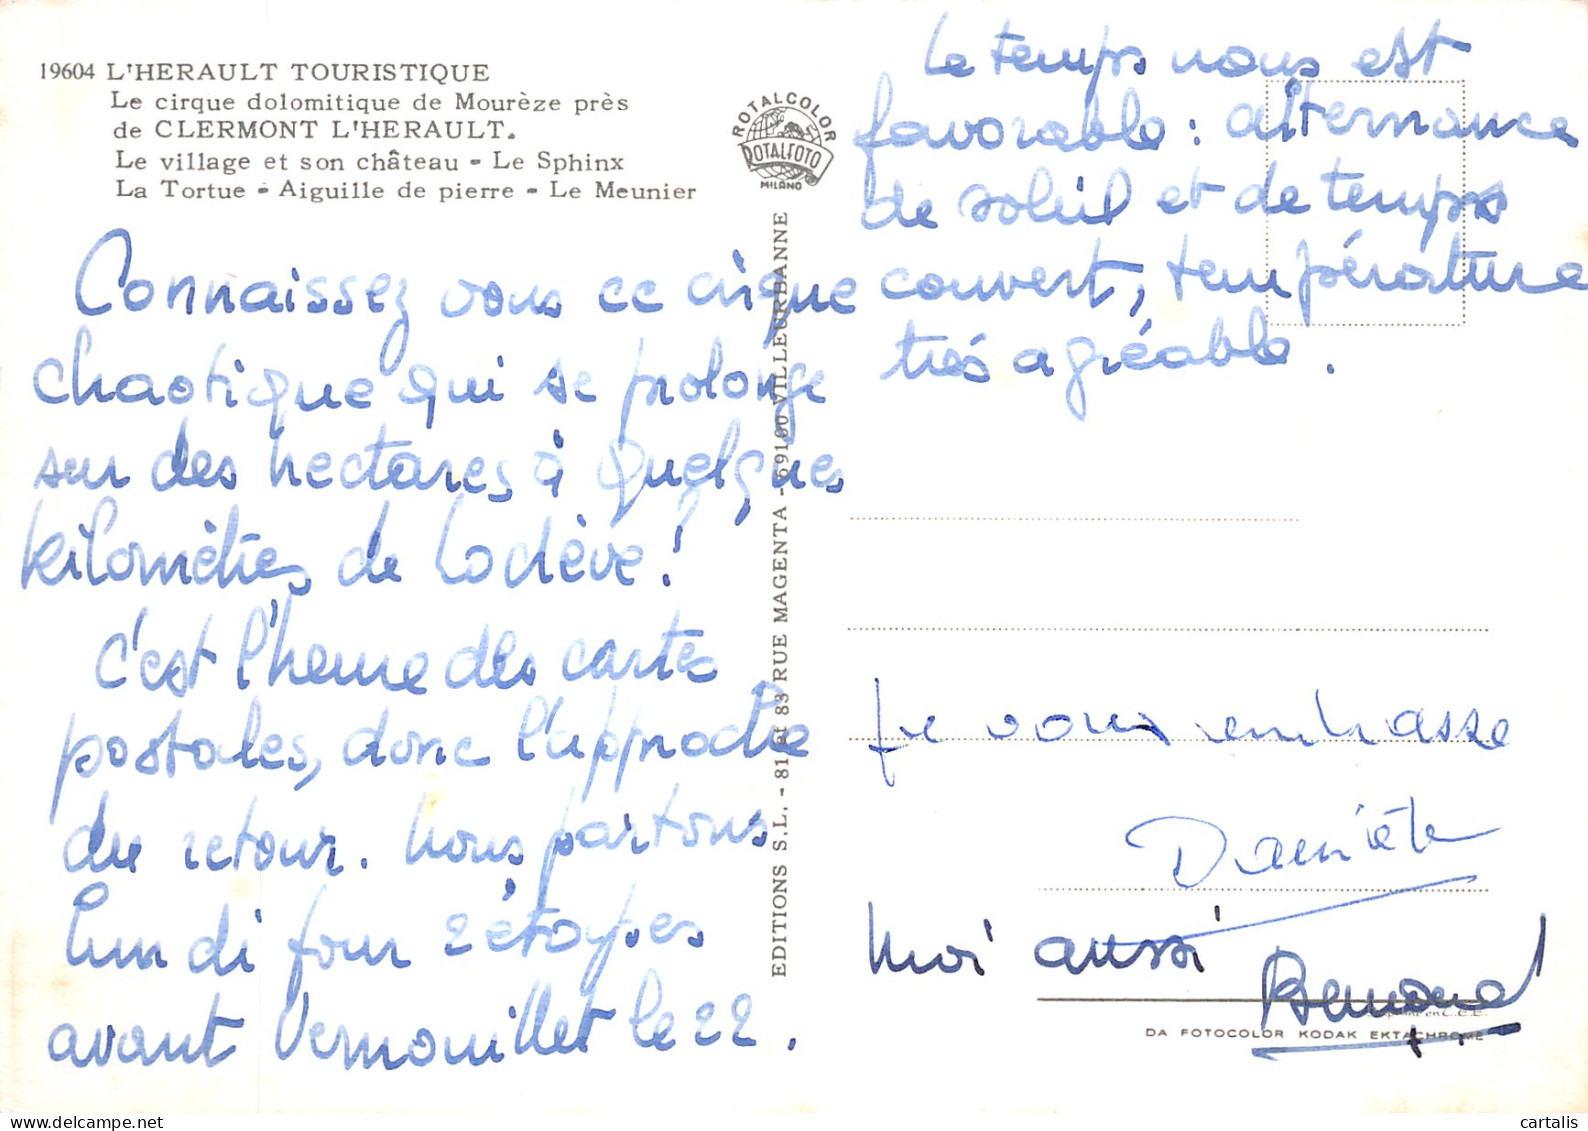 19604 L'HERAULT TOURISTIQUE
Le cirque dolomitique de Mourèze près
de CLERMONT L'HERAULT.
Le village et son château - Le Sphinx
La Tortue - Aiguille de pierre - Le Meunier
ROTALCOLOR
ROTALFOTO
MILANO
Connaissez vous ce cirque
chaotique qui se prolonge
sur des hectares à quelques
kilomètres de Lodève!
C'est l'heure des cartes
postales, donc l'approche
du retour. Nous partons
lundi pour 2 étapes
avant Vernouillet le 22.
EDITIONS S.L. - 81 et 83 RUE MAGENTA - 69100 VILLEURBANNE
Le temps nous est
favorable : alternance
de soleil et de temps
couvert, température
très agréable.
Je vous embrasse
Danièle
Moi aussi
Bernard
en C.E.E.
DA FOTOCOLOR KODAK EKTACHROME
cartalis